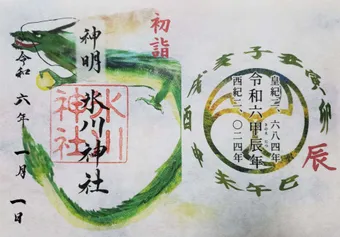 子丑寅卯
辰
巳午未申酉戌亥
皇紀二六八四年
令和六甲辰年
西紀二〇二四年
初詣
神明
氷川神社
氷川
神社
令和六年一月一日